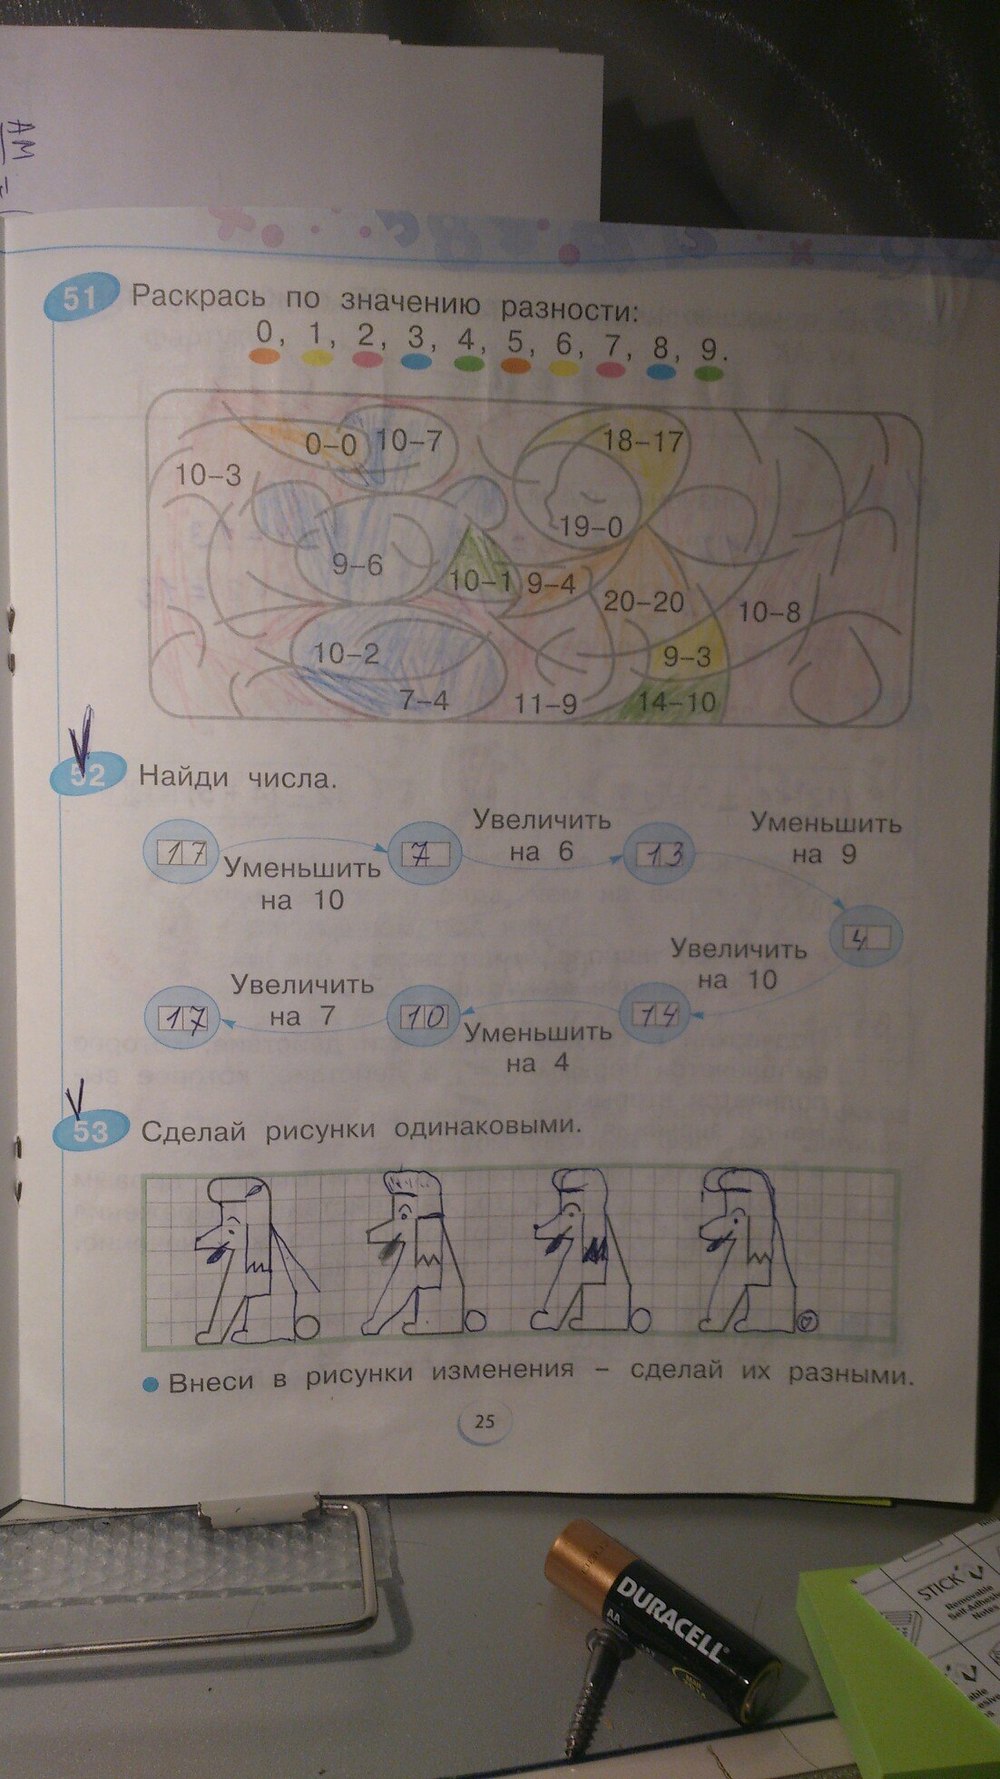 АМ
51 Раскрась по значению разности:
0, 1, 2, 3, 4, 5, 6, 7, 8, 9.
0–0 10–7 18–17
10–3
19–0
9–6 10–1 9–4 20–20 10–8
10–2 9–3
7–4 11–9 14–10
52 Найди числа.
17 Уменьшить на 10 7 Увеличить на 6 13 Уменьшить на 9
4
Увеличить на 10
17 Увеличить на 7 10 Уменьшить на 4 14
53 Сделай рисунки одинаковыми.
Внеси в рисунки изменения – сделай их разными.
25
DURACELL
AA
STICK
Removable
Self-Adhesive
Notes